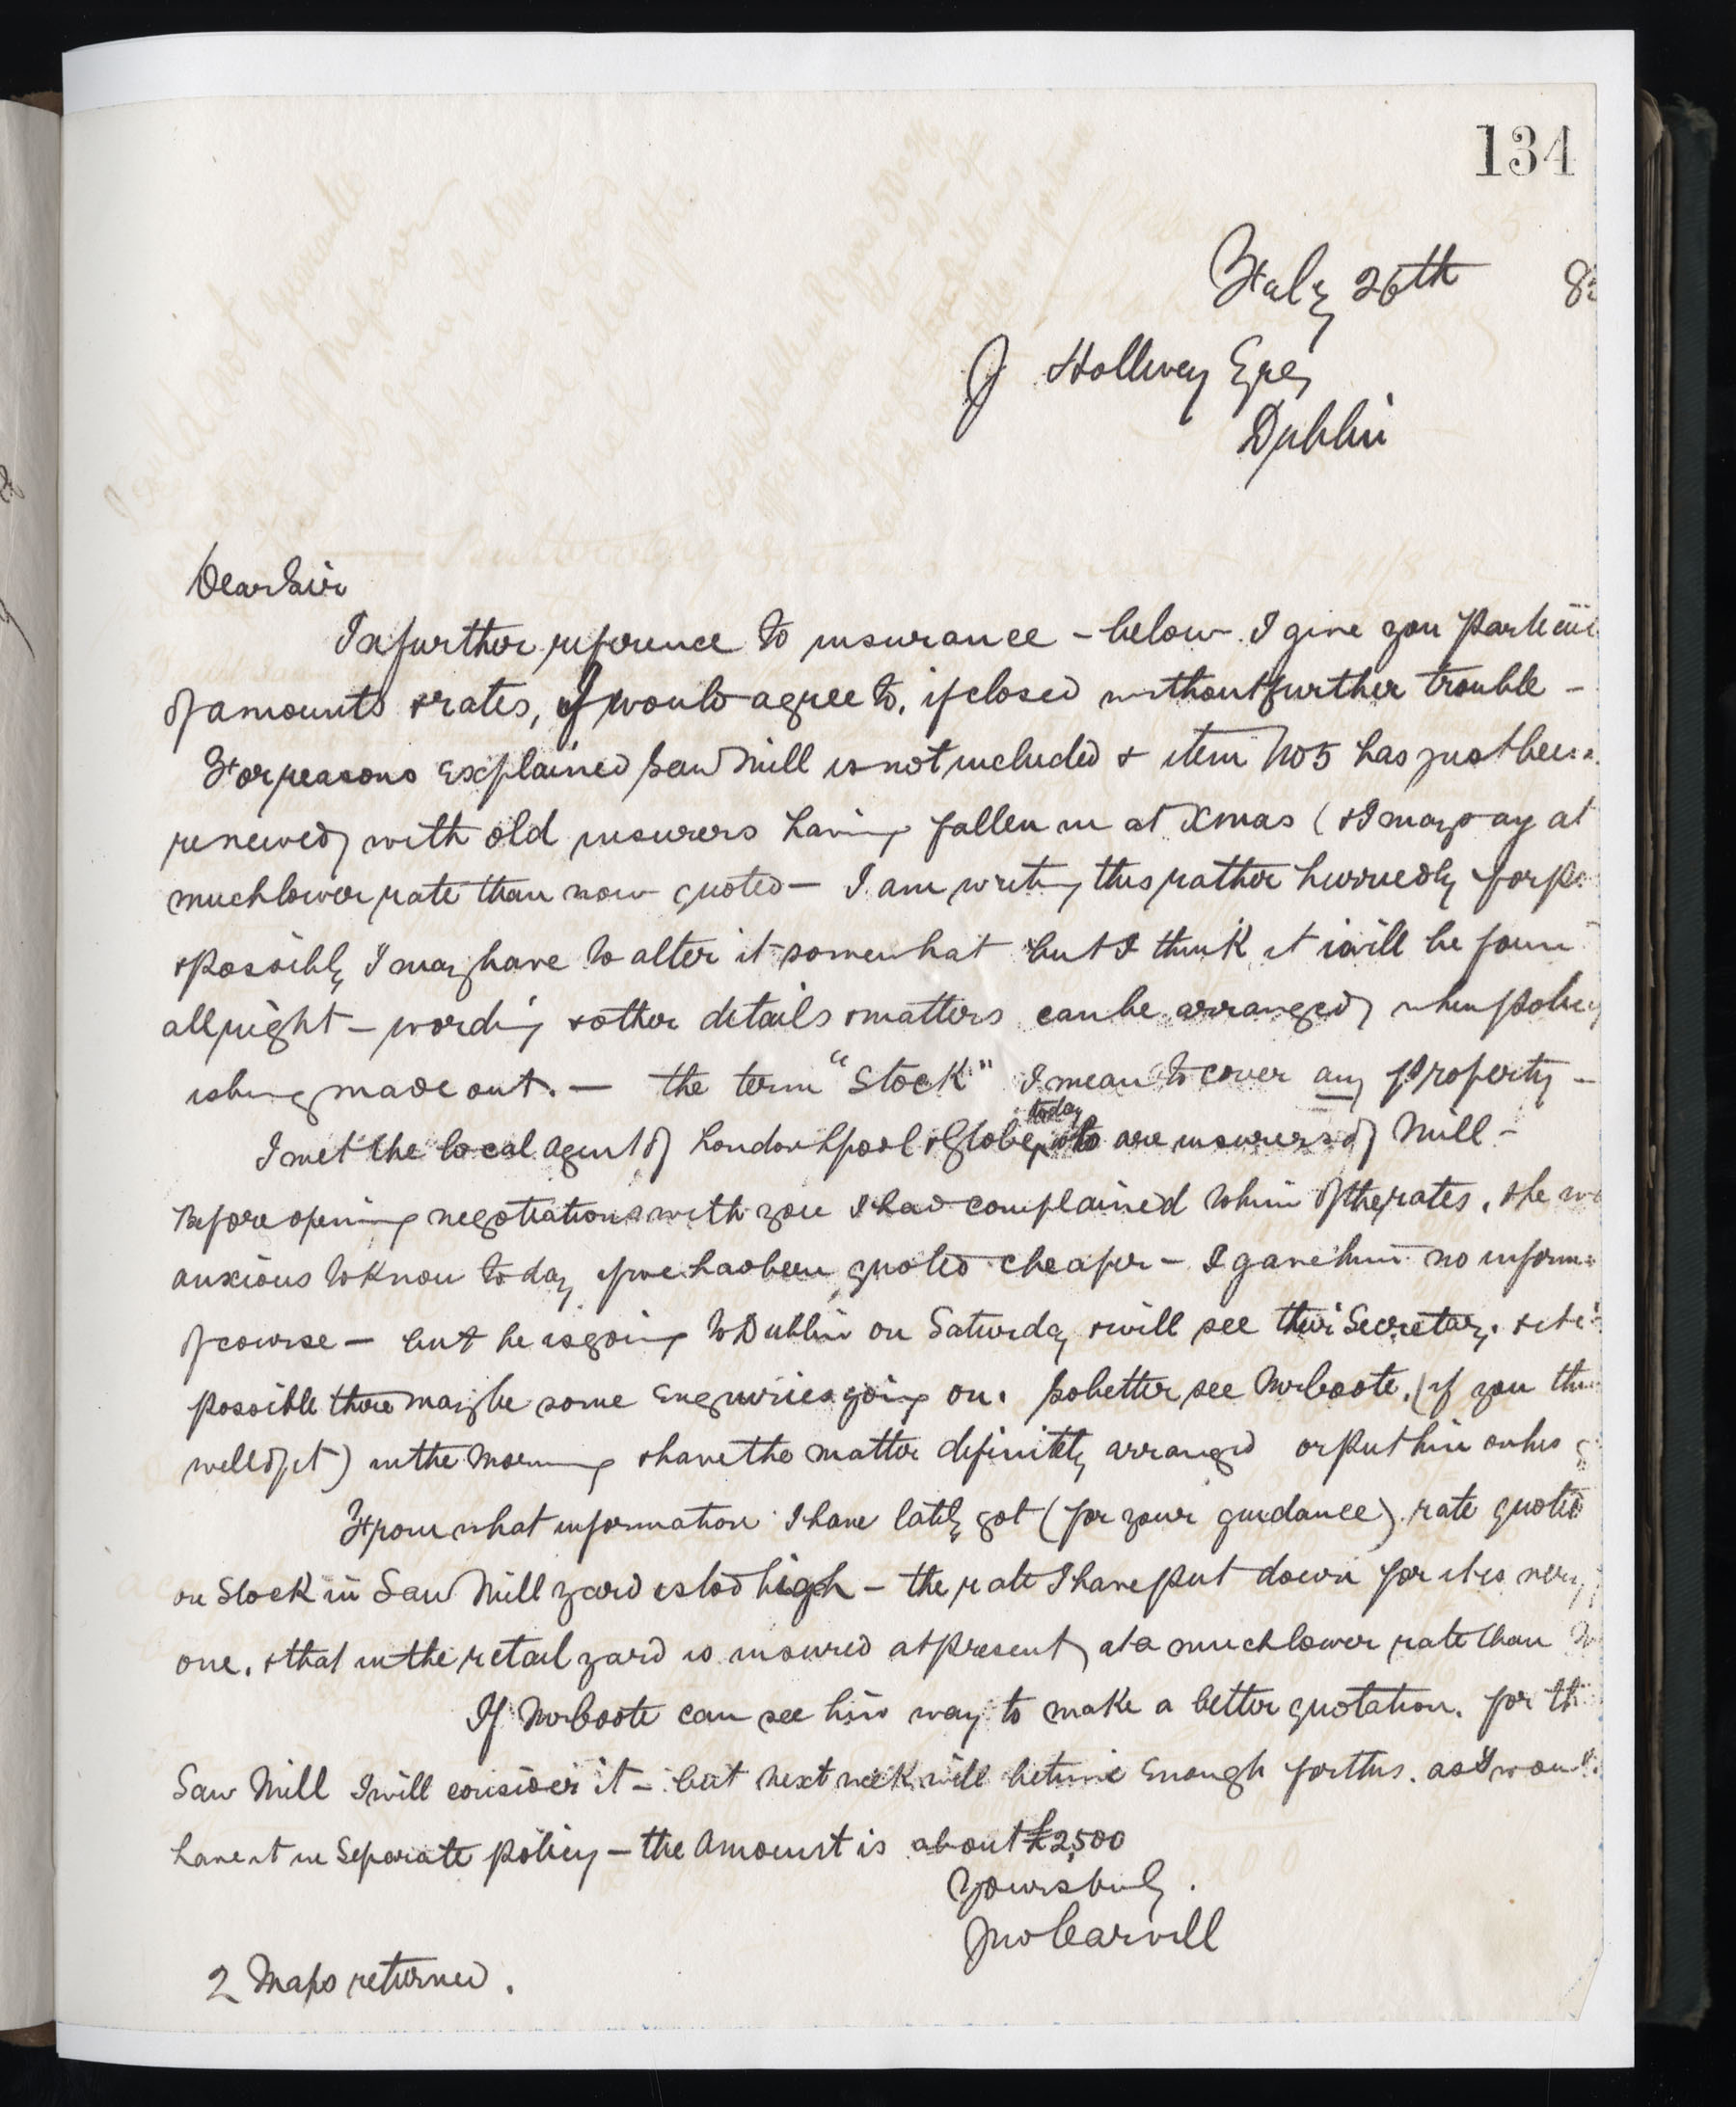 134
Feby 26th 85
J Hollwey Esq
Dublin
Dear Sir
In further reference to insurance – below I give you Particu
of amounts & rates, I would agree to, if closed without further trouble –
For reasons explained Saw Mill is not included & item No 5 has just been
renewed with old insurers having fallen in at Xmas (& I may say at
much lower rate than now quoted – I am writing this rather hurriedly for
& possibly I may have to alter it somewhat but I think it will be foun
all right – wording & other details & matters can be arranged when policy
is being made out. – the term "Stock" I mean to cover any property –
I met the local agent of London Lpool & Globe today who are insurers of Mill –
Before opening negotiations with you I had complained to him of the rates, & he wa
anxious to know today if we had been quoted cheaper – I gave him no inform
of course – but he is going to Dublin on Saturday & will see their Secretary, & it is
possible there may be some enquiries going on. so better see Mr Coote, (if you thin
well of it) in the morning & have the matter definitely arranged or put him on his
From what information I have lately got (for your guidance) rate quoted
on Stock in Saw Mill yard is too high – the rate I have put down for it is
one, & that in the retail yard is insured at present at a much lower rate than
If Mr Coote can see his way to make a better quotation, for th
Saw Mill I will consider it – but next week will be time enough for this, as I woul
have it in Separate policy – the Amount is about £2500
Yours truly.
Jno Carvill
2 Maps returned.